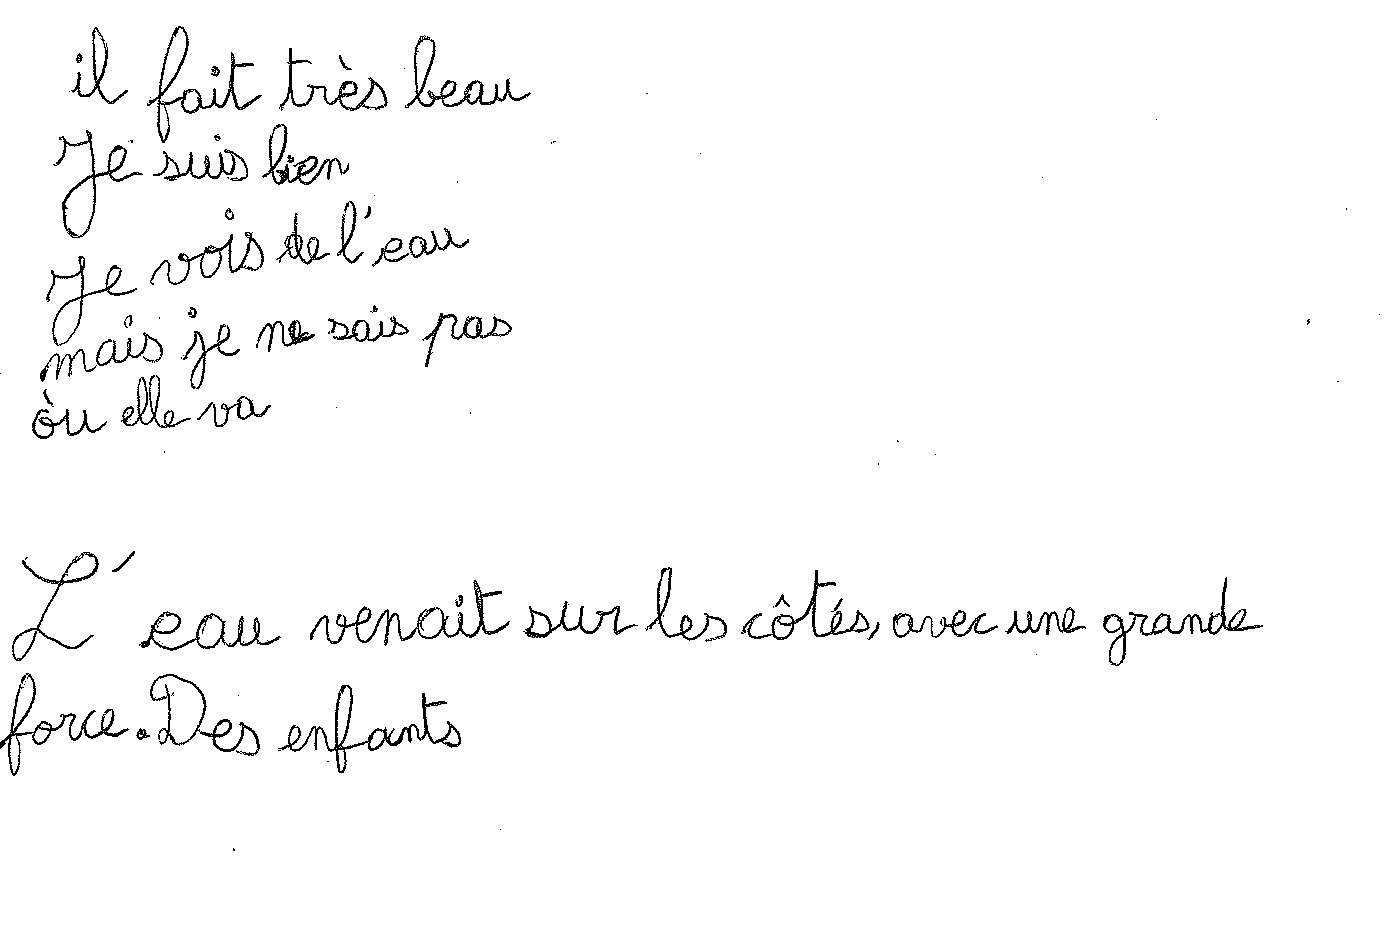 il fait très beau
Je suis bien
Je vois de l'eau
mais je ne sais pas
òu elle va
L'eau venait sur les côtés, avec une grande
force. Des enfants